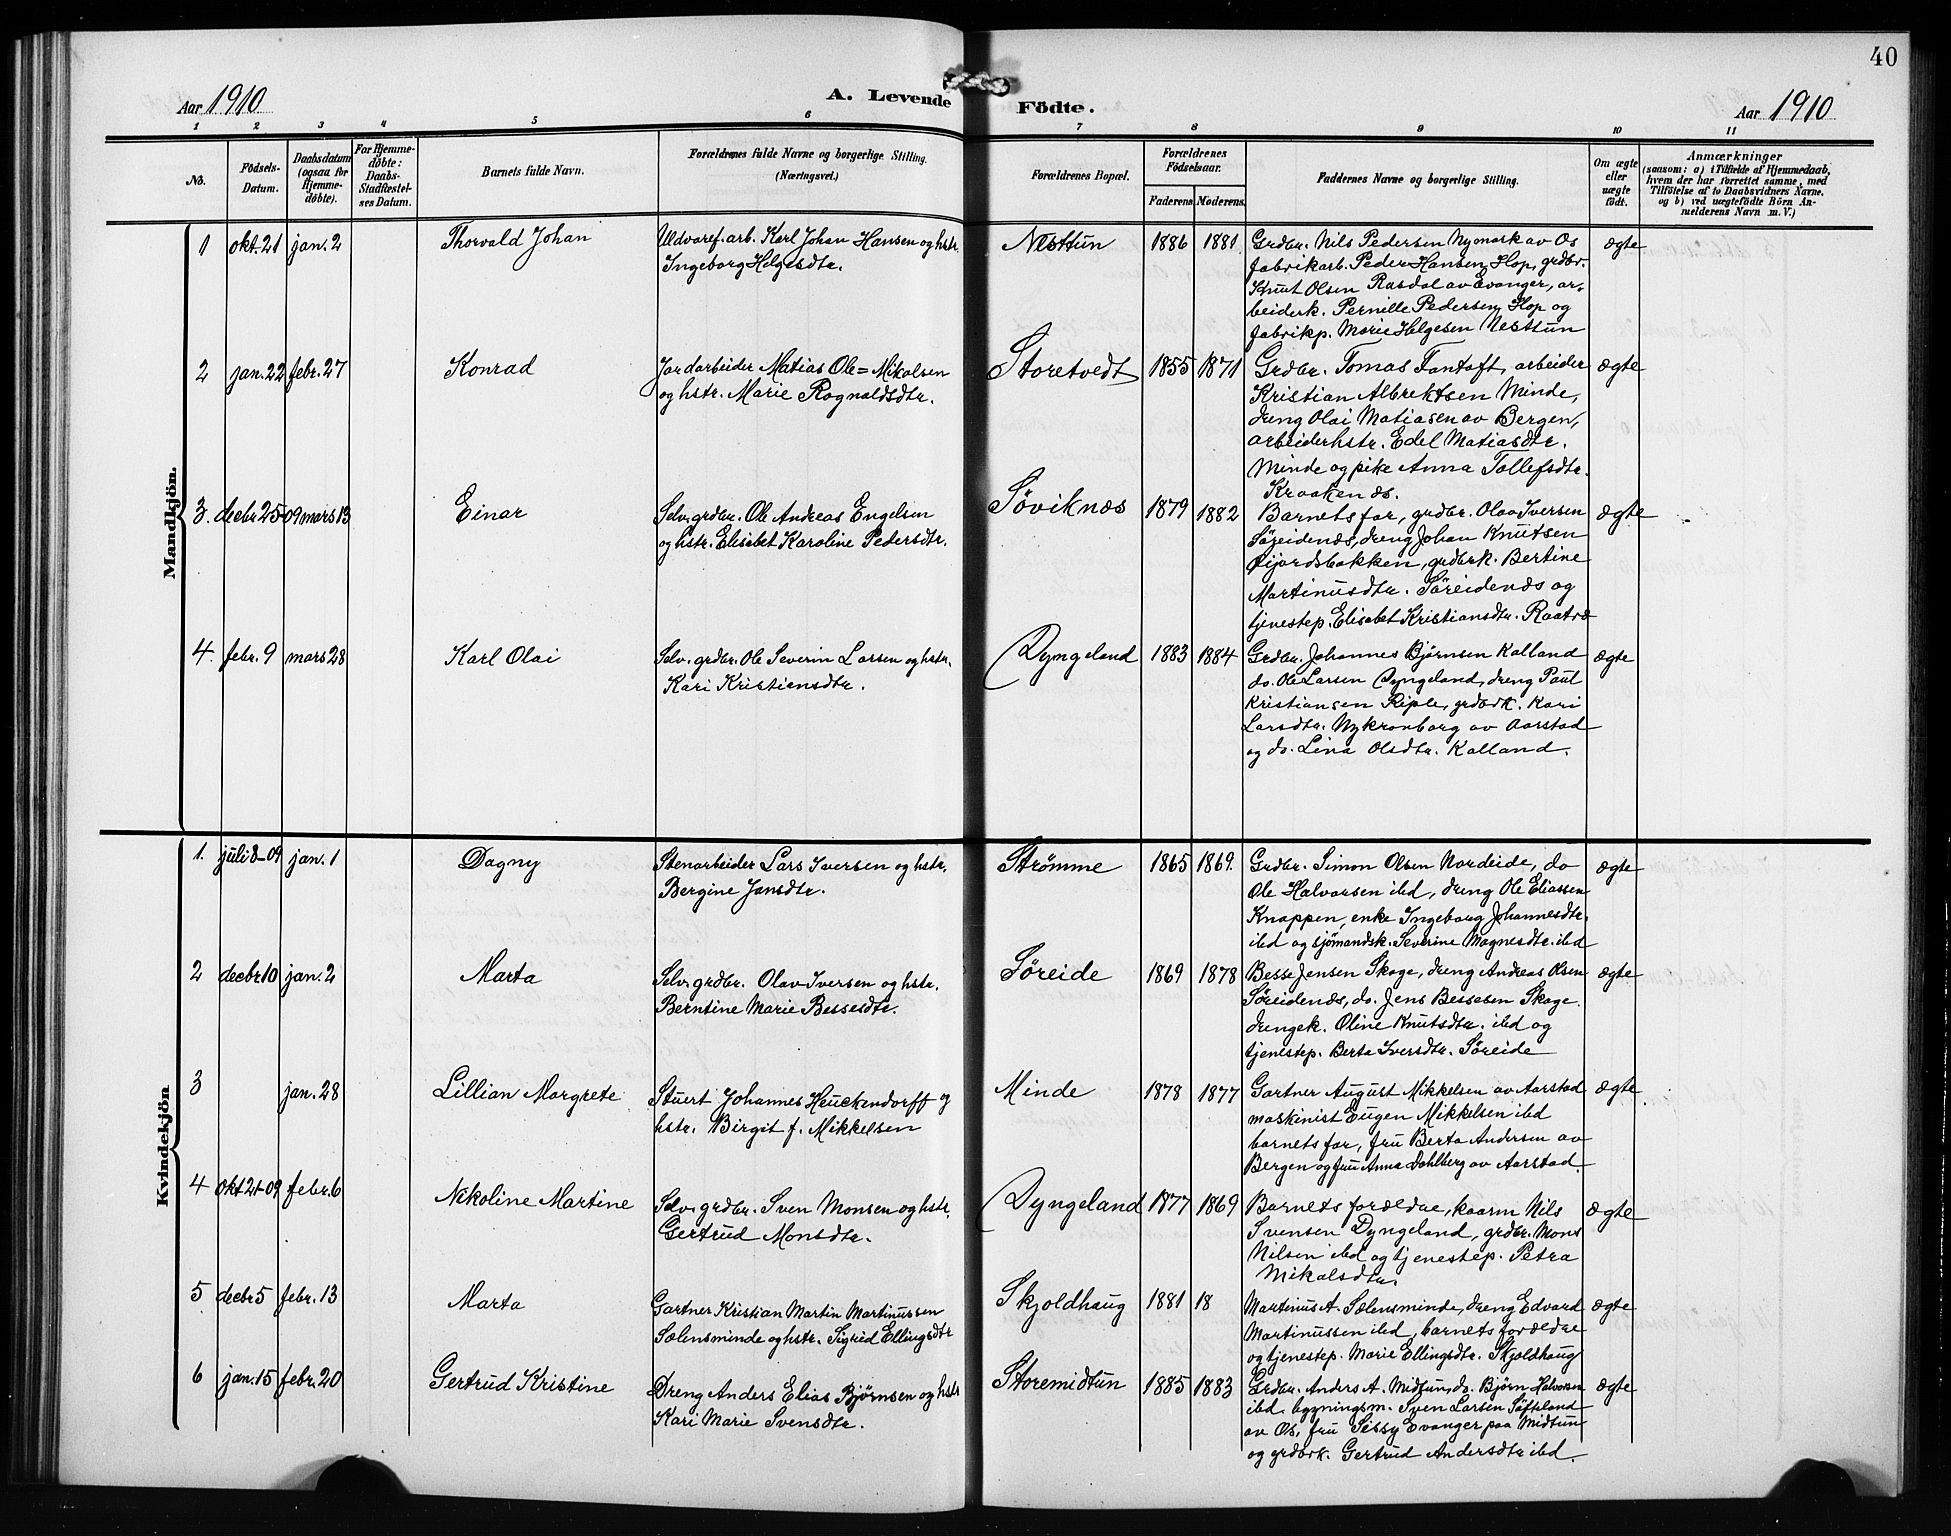 40
Aar 1910
A. Levende Födte.
Aar 1910
1 2 3 4 5 6 7 8 9 10 11
No.
Födsels-
Datum.
Daabsdatum
(ogsaa for
Hjemme-
döbte).
For Hjemme-
döbte:
Daabs-
Stadfæstel-
ses Datum.
Barnets fulde Navn.
Forældrenes fulde Navne og borgerlige Stilling.
(Næringsvei.)
Forældrenes Bopæl.
Forældrenes
Födselsaar.
Faderens. Moderens.
Faddernes Navne og borgerlige Stilling.
Om ægte
eller
uægte
födt.
Anmærkninger
(saasom: a) i Tilfælde af Hjemmedaab,
hvem der har forrettet samme, med
Tilföielse af to Daabsvidners Navne,
og b) ved uægtefödte Börn An-
melderens Navn m. V.)
Mandkjön.
1 okt. 21 jan. 2 Thorvald Johan
Uldvaref. arb. Karl Johan Hansen og hstr.
Ingeborg Helgesdtr.
Nesttun 1886 1881
Grdbr. Nils Pedersen Nymark av Os
fabrikarb. Peder Hansen Hop, grdbr.
Knut Olsen Rasdal av Evanger, ar-
beiderk. Pernille Pedersen Hop og
fabrikp. Marie Helgesen Nesttun
ægte
2 jan. 22 febr. 27 Konrad
Jordarbeider Matias Ole= Mikalsen
og hstr. Marie Rognaldsdtr.
Storetvedt 1855 1871
Grdbr. Tomas Fantoft, arbeider
Kristian Albrektsen Minde,
dreng Olai Matiasen av Bergen,
arbeiderhstr. Edel Matiasdtr.
Minde og pike Anna Tollefsdtr.
Kraakenæs.
ægte
3. decbr 25-09 mars 13 Einar
Selv. grdbr. Ole Andreas Engelsen
og hstr. Elisabet Karoline Pedersdtr.
Søviknæs 1879 1882
Barnets far, grdbr. Olav Iversen
Søreidenæs, dreng Johan Knutsen
Fjordsbakken, grdbrk. Bertine
Martinusdtr. Søreidenæs og
tjenestep. Elisabet Kristiansdtr. Raatræ
ægte
4. febr. 9 mars 28 Karl Olai
Selv. grdbr. Ole Severin Larsen og hstr.
Kari Kristiansdtr.
Dyngeland 1883 1884
Grdbr. Johannes Bjørnsen Kalland
do. Ole Larsen Dyngeland, dreng Paul
Kristiansen Riple, grdbrk. Kari
Larsdtr. Nykronborg av Aarstad
og do. Lina Olsdtr. Kalland.
ægte
Kvindekjön
1. juli 8-09 jan. 1 Dagny
Stenarbeider Lars Iversen og hstr.
Bergine Jansdtr.
Strømme 1865 1869.
Grdbr. Simon Olsen Nordeide, do
Ole Halvorsen ibd, dreng Ole Eliassen
Knappen, enke Ingeborg Johannesdtr.
ibd og sjømandsk. Severine Magnesdtr. ibd
ægte
2 decbr 10 jan. 2 Marta
Selv. grdbr. Olav Iversen og hstr.
Berntine Marie Bessesdtr.
Søreide 1869 1878
Besse Jensen Skage, dreng Andreas Olsen
Søreidenæs, do. Jens Bessesen Skage.
drengek. Oline Knutsdtr. ibd og
tjenestep. Berta Iversdtr. Søreide
ægte
3 jan. 28 Lillian Margrete
Stuert Johannes Heuckendorff og
hstr. Birgit f. Mikkelsen
Minde 1878 1877
Gartner August Mikkelsen av Aarstad
maskinist Eugen Mikkelsen ibd
barnets far, fru Berta Andersen av
Bergen og fru Anna Dahlberg av Aarstad.
ægte
4 okt 21-09 febr. 6 Nikoline Martine
Selv. grdbr. Sven Monsen og hstr.
Gertrud Monsdtr.
Dyngeland 1877 1869
Barnets forældre, kaarm Nils
Svensen Dyngeland, grdbr. Mons
Nilsen ibd og tjenestep. Petra
Mikalsdtr.
ægte
5 decbr 5 febr. 13 Marta
Gartner Kristian Martin Martinussen
Sælensminde og hstr. Sigrid Ellingsdtr
Skjoldhaug 1881 18
Martinus A. Sælensminde, dreng Edvard
Martinussen ibd, barnets forældre
og tjenestep. Marie Ellingsdtr. Skjoldhaug
ægte
6 jan. 15 febr. 20 Gertrud Kristine
Dreng Anders Elias Bjørnsen og hstr
Kari Marie Svensdtr.
Storemidtun 1885 1883
Grdbr. Anders A. Midtun, do. Bjørn Halvorsen
ibd. bygningsm. Sven Larsen Søfteland
av Os, fru Sissy Evanger paa Midtun
og grdbrk. Gertrud Andersdtr ibd.
ægte